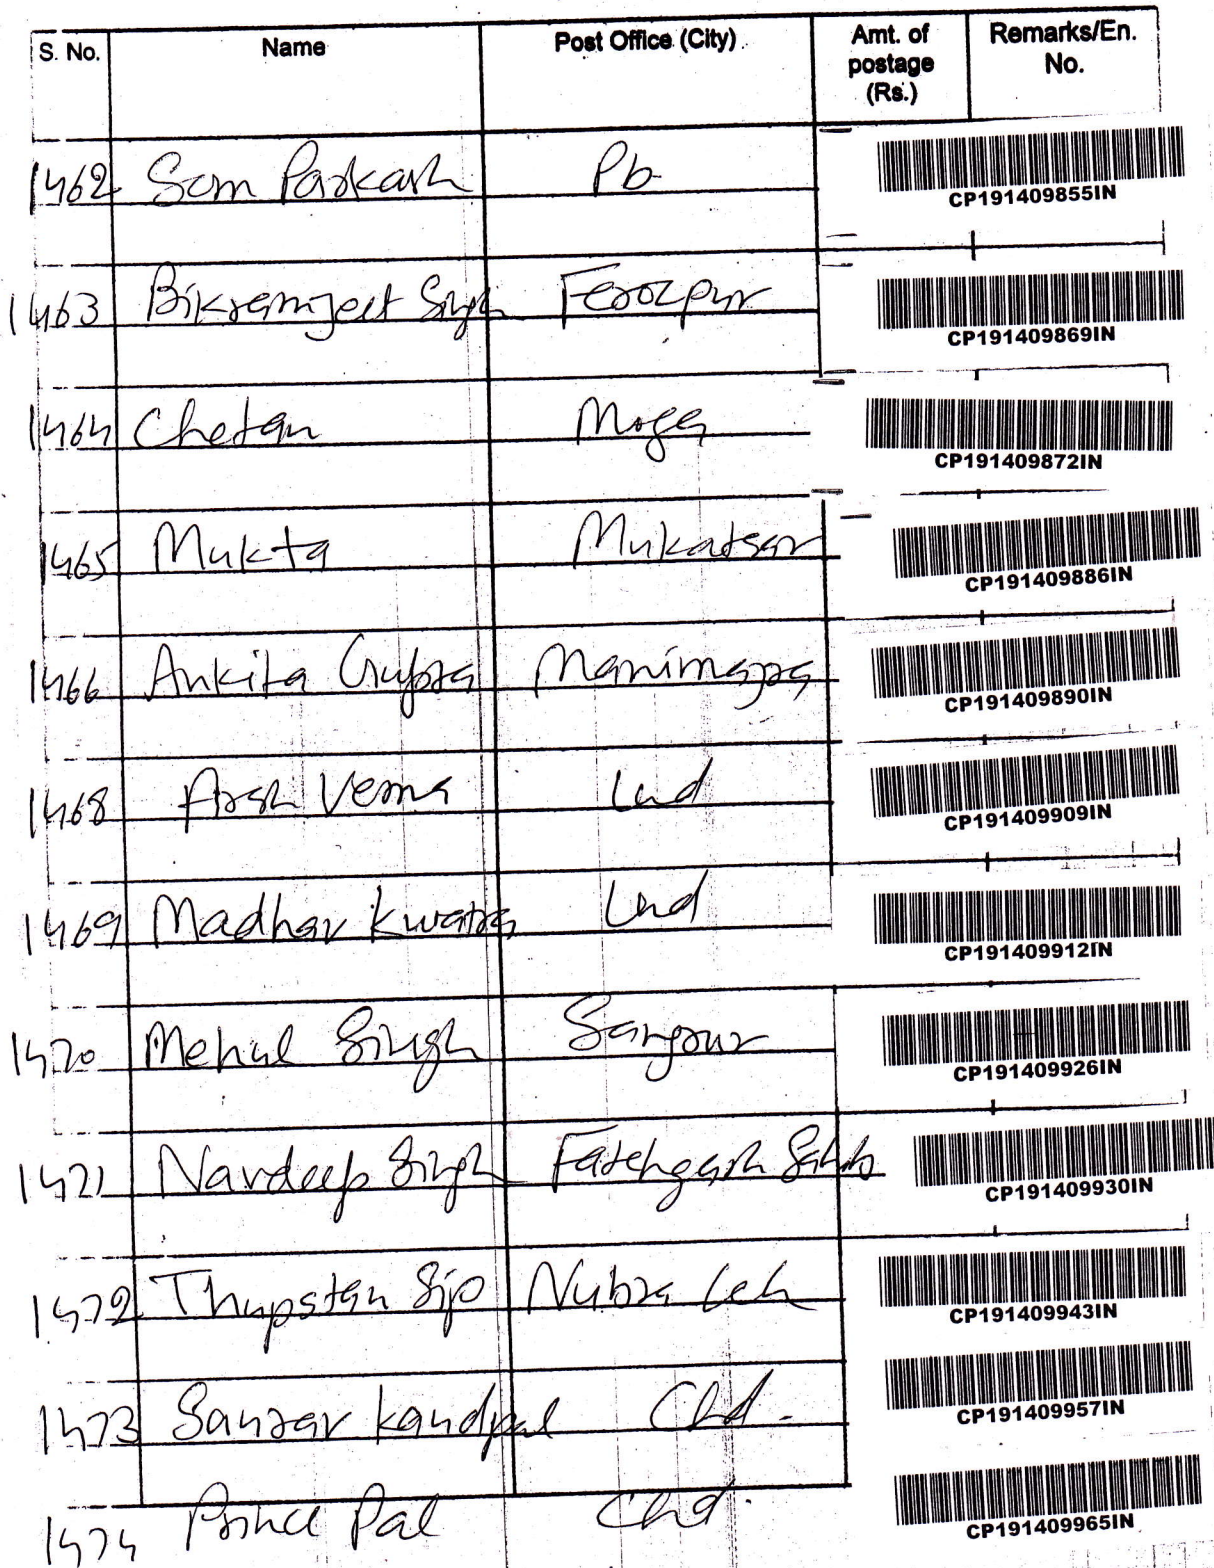 S. No. Name Post Office (City) Amt. of postage (Rs.) Remarks/En. No.
1462 Som Parkash Pb CP191409855IN
1463 Bikramjeet Singh Ferozpur CP191409869IN
1464 Chetan Moga CP191409872IN
1465 Mukta Mukatsar CP191409886IN
1466 Ankita Gupta Manimajra CP191409890IN
1468 Arsh Verma Lhd CP191409909IN
1469 Madhav Kwatra Lhd CP191409912IN
1470 Mehul Singh Sangrur CP191409926IN
1471 Navdeep Singh Fatehgarh Sahib CP191409930IN
1472 Thupstan Nubra Leh CP191409943IN
1473 Kandpal Chd. CP191409957IN
1474 Prince Pal Chd. CP191409965IN